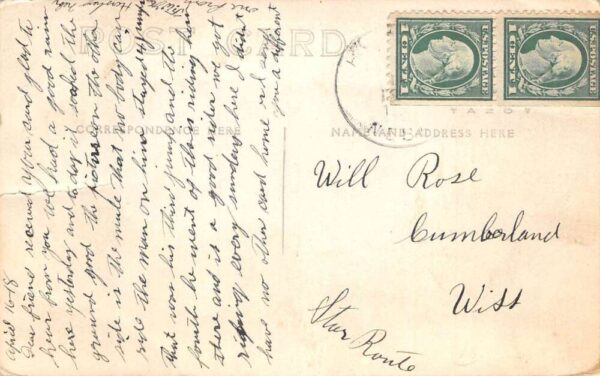 POST CARD
CORRESPONDENCE HERE
NAME AND ADDRESS HERE
U.S. POSTAGE
1 CENT 1
U.S. POSTAGE
1 CENT 1
April 16-18
Dear friend received your card glad to
hear from you we had a good rain
here yesterday and to day it soaked the
ground good the picture on the other
side is the mule that no body can
ride the man on him stayed by
But won his third jump and the
fourth he went of theas riding
there and is a good rider we got
riding every sunday here I didnt
have no other card home so I send
you a different
one from
Will Rose
Cumberland
Wiss
Star Route